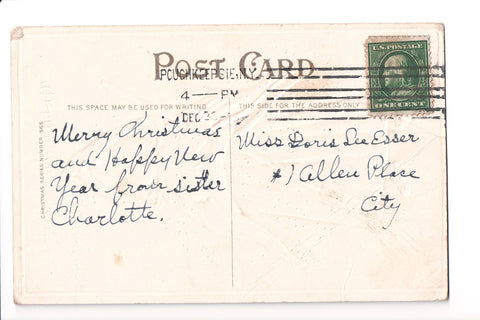 POST CARD
POUGHKEEPSIE, N.Y.
4 — PM
DEC
U.S. POSTAGE
ONE CENT
THIS SPACE MAY BE USED FOR WRITING
THIS SIDE FOR THE ADDRESS ONLY
CHRISTMAS SERIES NUMBER 565
Merry Christmas
and Happey New
Year from sister
Charlotte.
Miss Doris Lee Esser
#1 Allen Place
City